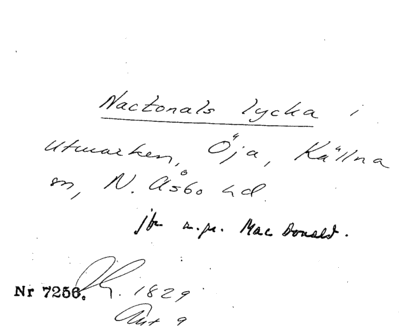 Nactonals lycka i
utmarken, Öja, Källna
sn, N. Åsbo hd.
jfr n.pr. Mac Donald.
Nr 7256. 1829